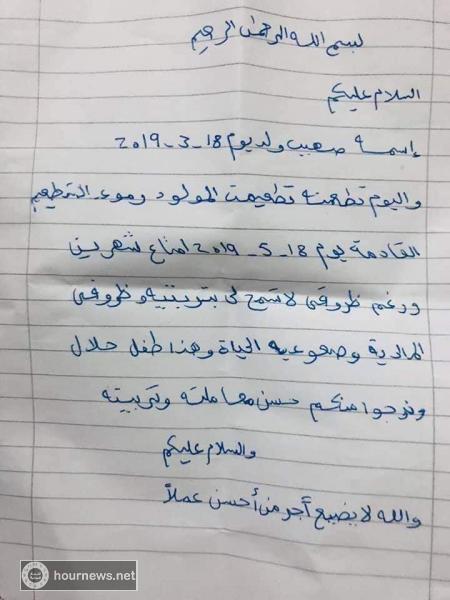 بسم الله الرحمن الرحيم
السلام عليكم
إسمه صهيب ولد يوم 18-3-2019
واليوم تطعمته تطعيمت المولود وموعد التطعيم
القادمة يوم 18-5-2019 امتاع شهرين
ورغم ظروفي لا تسمح لي بتربتيه وظروفي
المادية وصعوبة الحياة وهذا طفل حلال
ونرجوا منكم حسن معاملته وتربيته
والسلام عليكم
والله لا يضيع أجر من أحسن عملاً
hournews.net